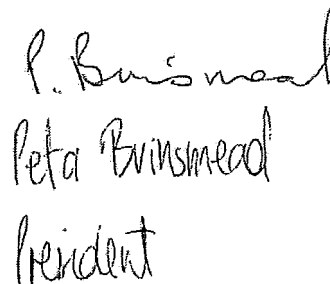 P. Brinsmead
Peta Brinsmead
President